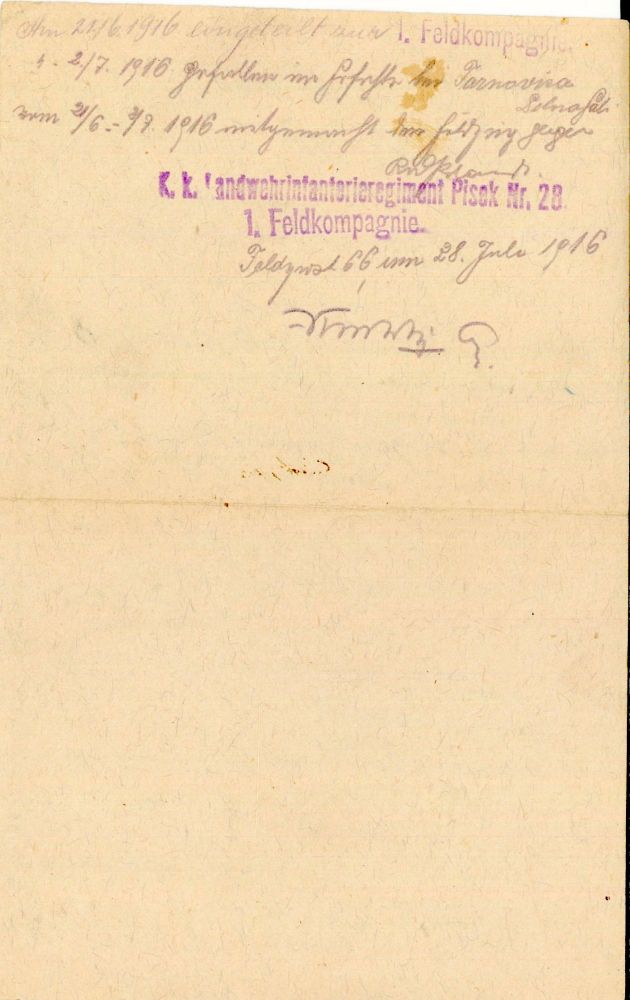 Am 21/6. 1916 eingeteilt zur 1. Feldkompagnie.
" 2/7. 1916 Gefallen im Gefechte bei Tarnovica
Polna
vom 21/6 – 2/7. 1916 mitgemacht den Feldzug gegen
Rußland.
K. k. Landwehrinfanterieregiment Pisek Nr. 28
1. Feldkompagnie.
Feldpost 66, am 28. Juli 1916